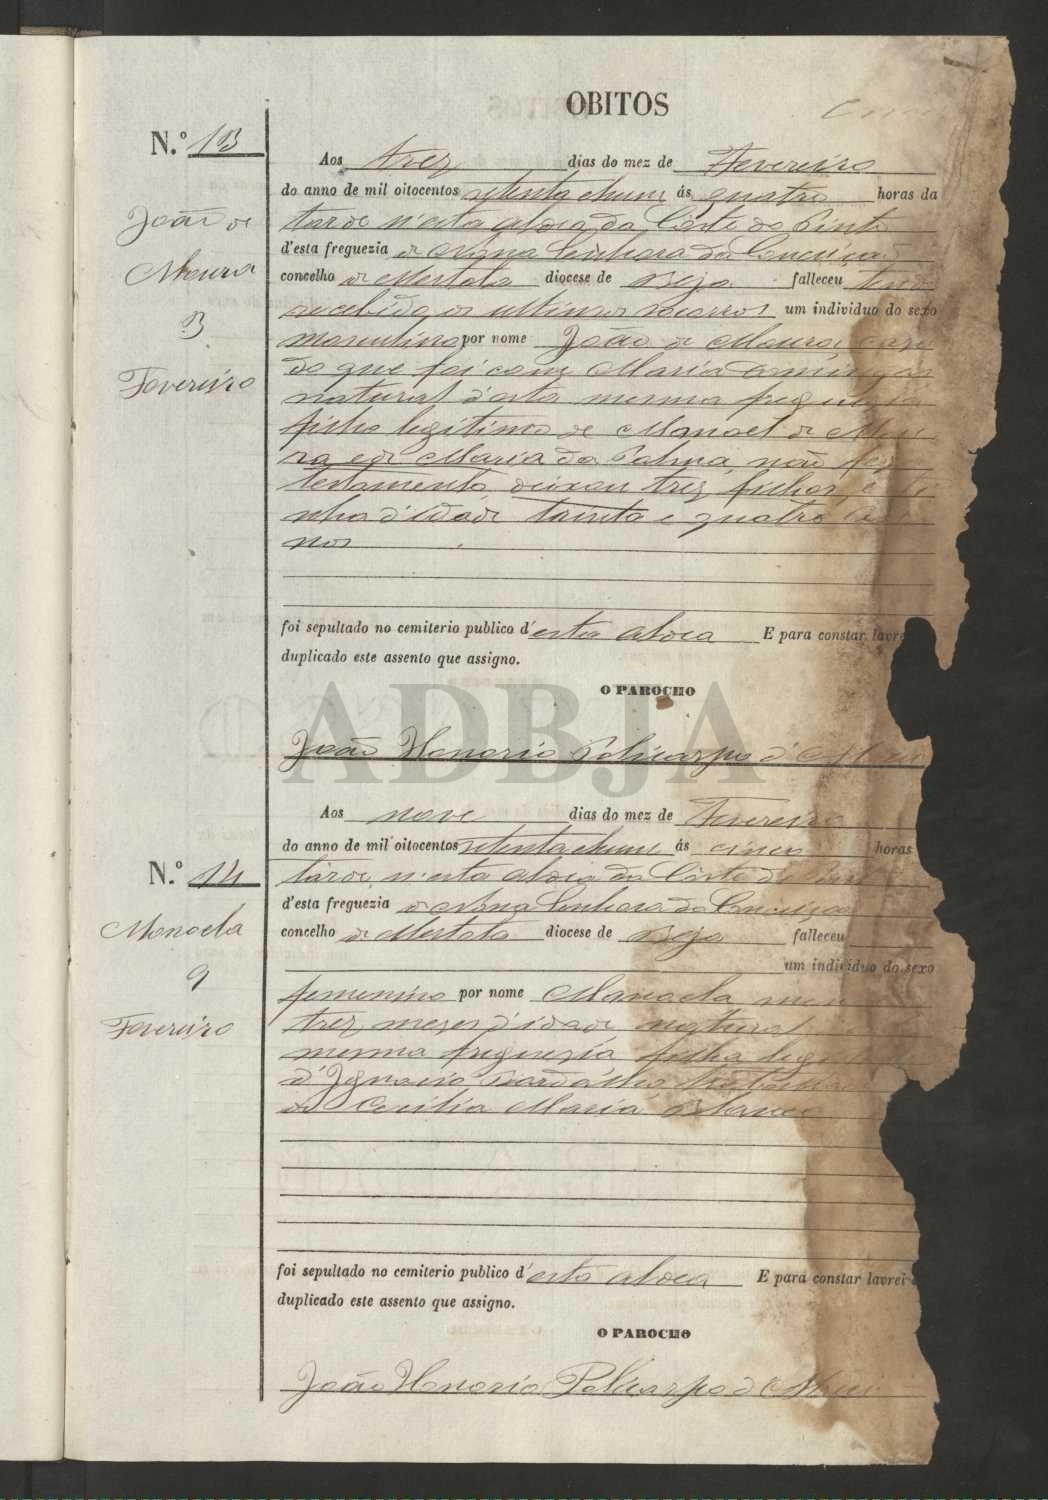 OBITOS
N.º 13
Aos trez dias do mez de Fevereiro
do anno de mil oitocentos setenta e hum ás quatro horas da
João de
tarde n'esta aldeia da Côrte do Pinto
d'esta freguezia de Nossa Senhora da Conceição
Moura
concelho de Mertola diocese de Beja falleceu tendo
recebido os ultimos socorros um individuo do sexo
3
masculino por nome João de Moura, caza
Fevereiro
do que foi com Maria
natural d'esta mesma freguezia
filho legitimo de Manoel de Mou
ra e de Maria da Palma, não fez
testamento, deixou trez filhos, e ti
nha d'idade trinta e quatro an
nos
foi sepultado no cemiterio publico d'esta aldeia E para constar lavre
duplicado este assento que assigno.
O PAROCHO
ADBJA
João Honorio Policarpo d'
Aos nove dias do mez de Fevereiro
do anno de mil oitocentos setenta e hum ás cinco horas
N.º 14
tarde, n'esta aldeia da Côrte do Pint
d'esta freguezia de Nossa Senhora da Conceição
Manoela
concelho de Mertola diocese de Beja falleceu
9
um individuo do sexo
femenino por nome Manoela
Fevereiro
trez mezes d'idade natural
mesma freguezia filha leg
d'Ignacio
de Cecilia Maria
foi sepultado no cemiterio publico d'esta aldeia E para constar lavrei
duplicado este assento que assigno.
O PAROCHO
João Honorio Policarpo d'